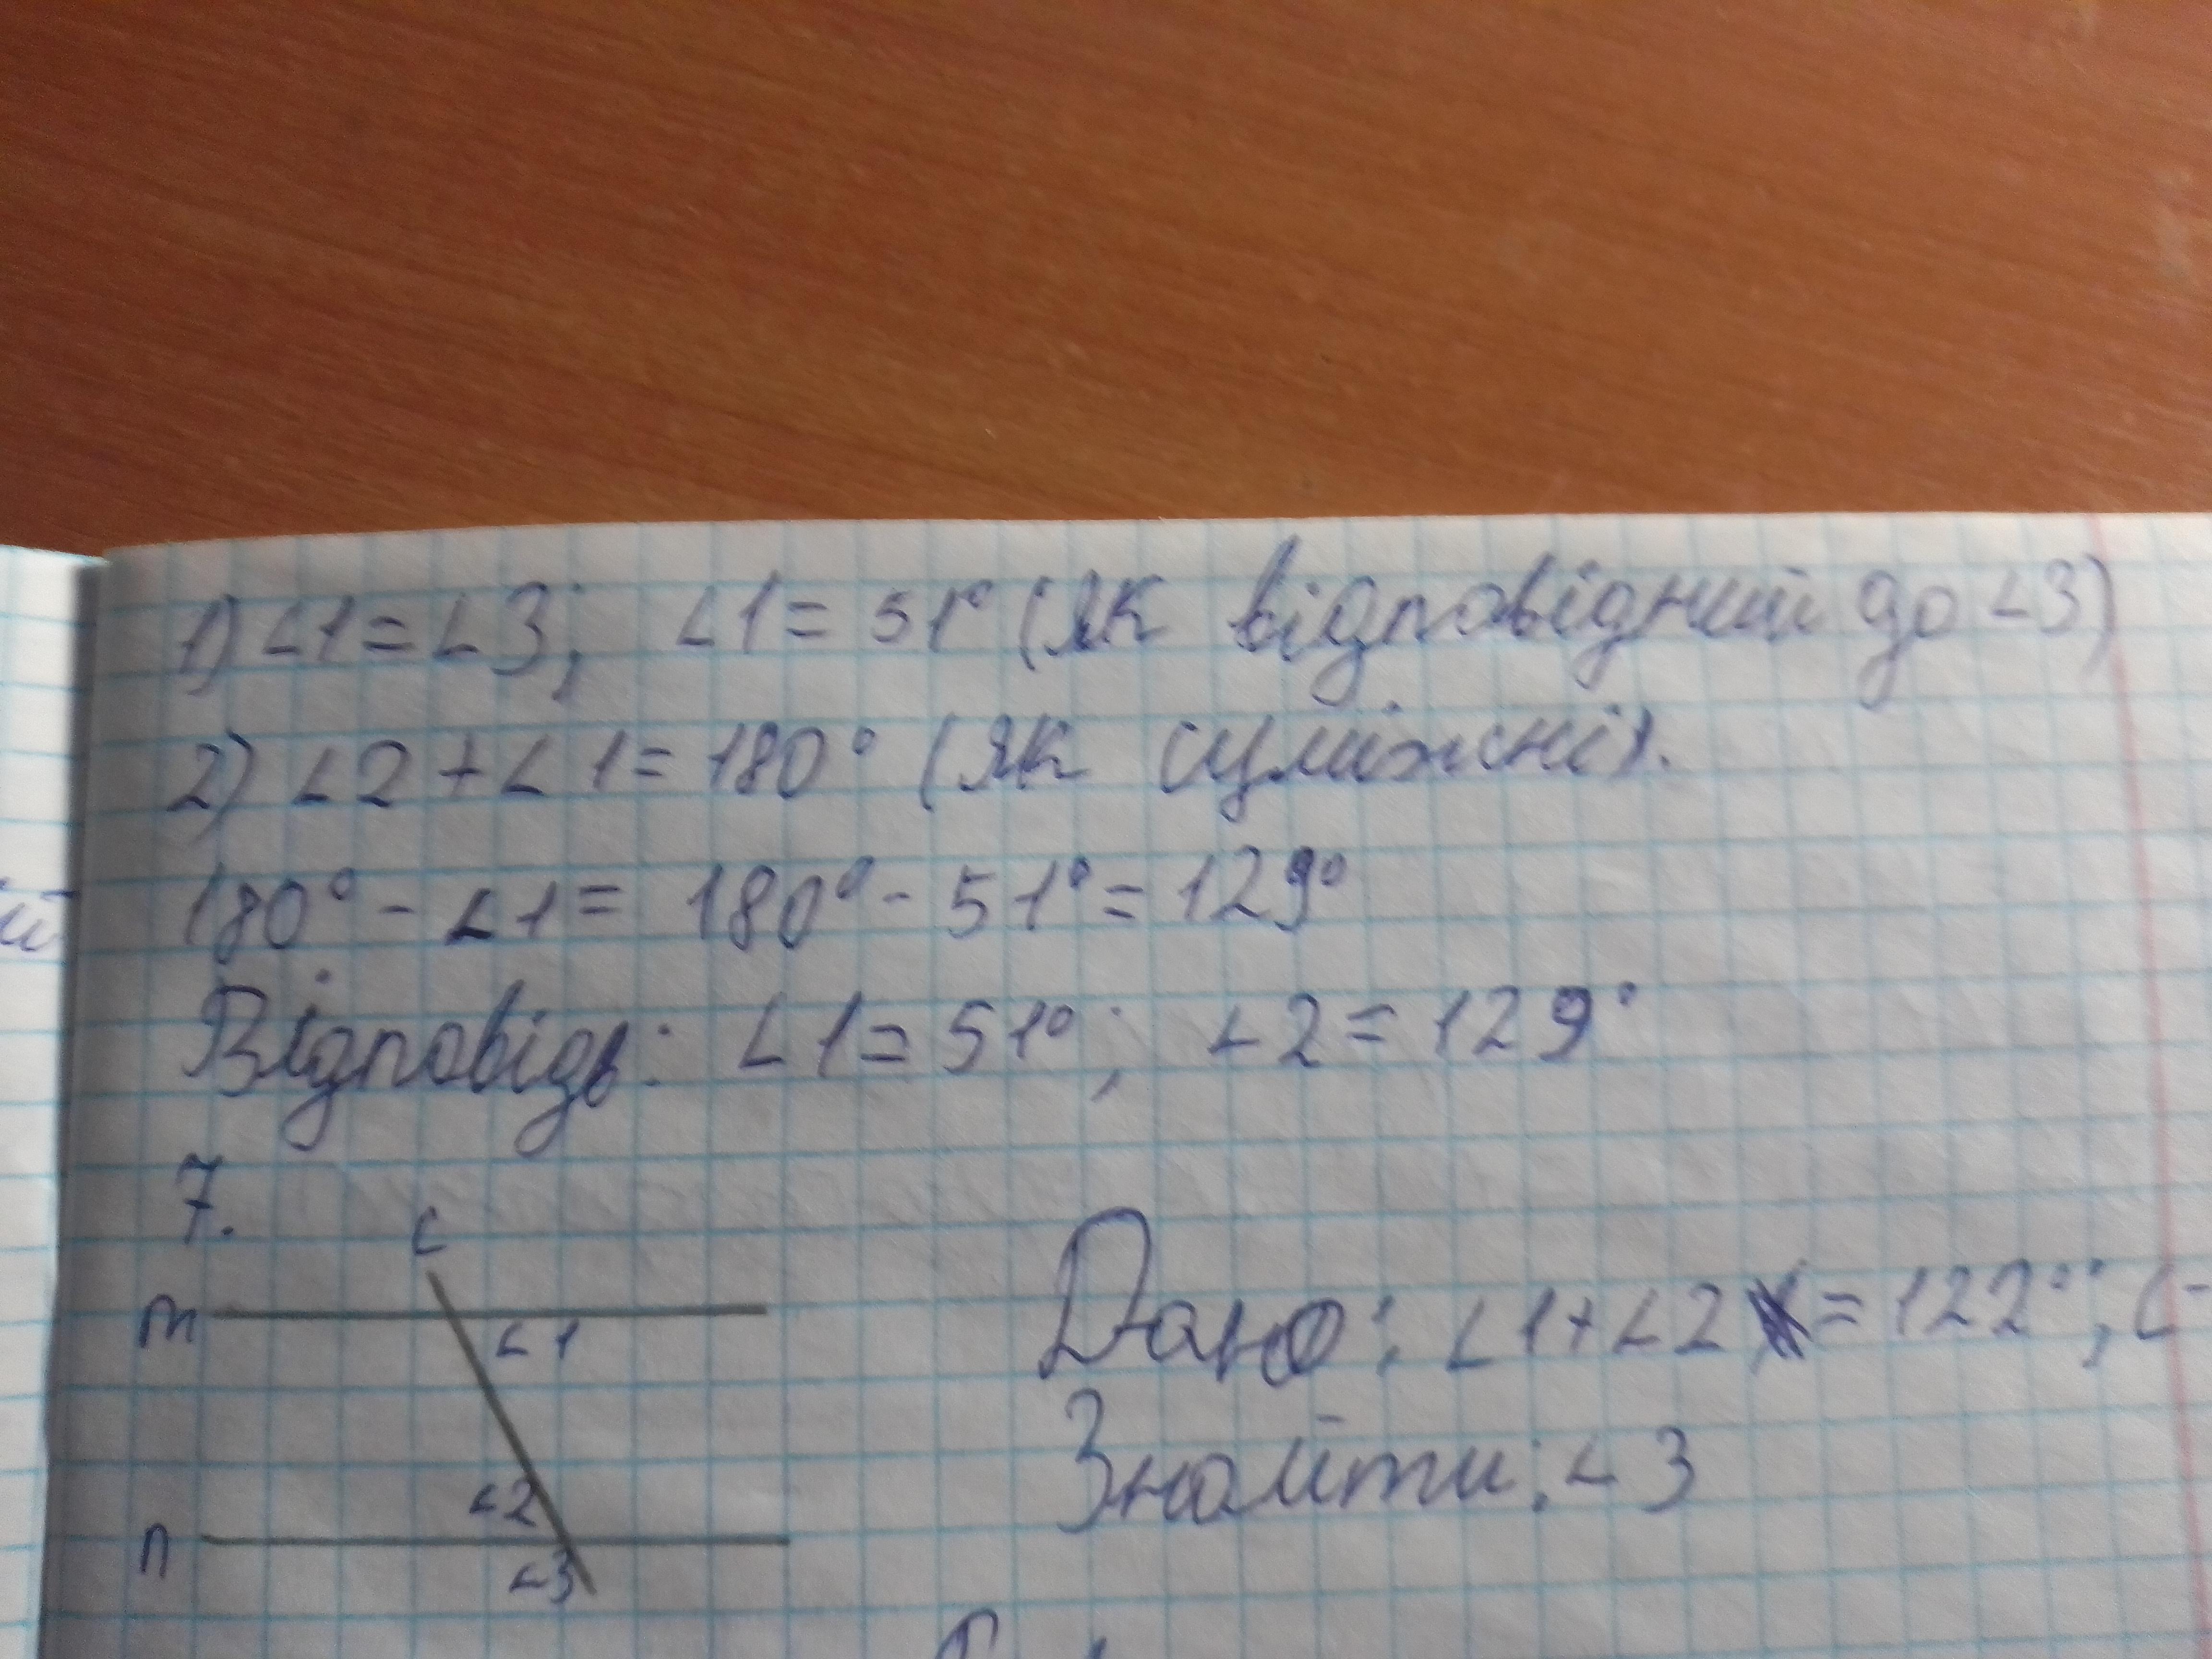 1) ∠1=∠3; ∠1=51° (як відповідний до ∠3)
2) ∠2+∠1=180° (як суміжні).
180°-∠1= 180°-51°=129°
Відповідь: ∠1=51°; ∠2=129°
7.
c
m
∠1
∠2
n
∠3
Дано: ∠1+∠2=122°;
Знайти: ∠3